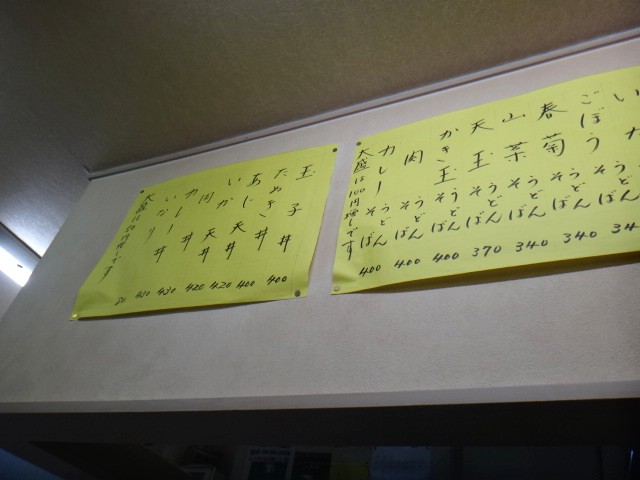 いか
ごぼう そば うどん 340
春菊 そば うどん 340
山菜 そば うどん 340
天玉 そば うどん 370
かき玉 そば うどん 400
肉 そば うどん 400
カレー そば うどん 400
大盛は100円増しです
玉子丼 400
たぬき丼 400
あじ天丼 420
いか天丼 420
肉丼 430
カレー丼
いなり
大盛は